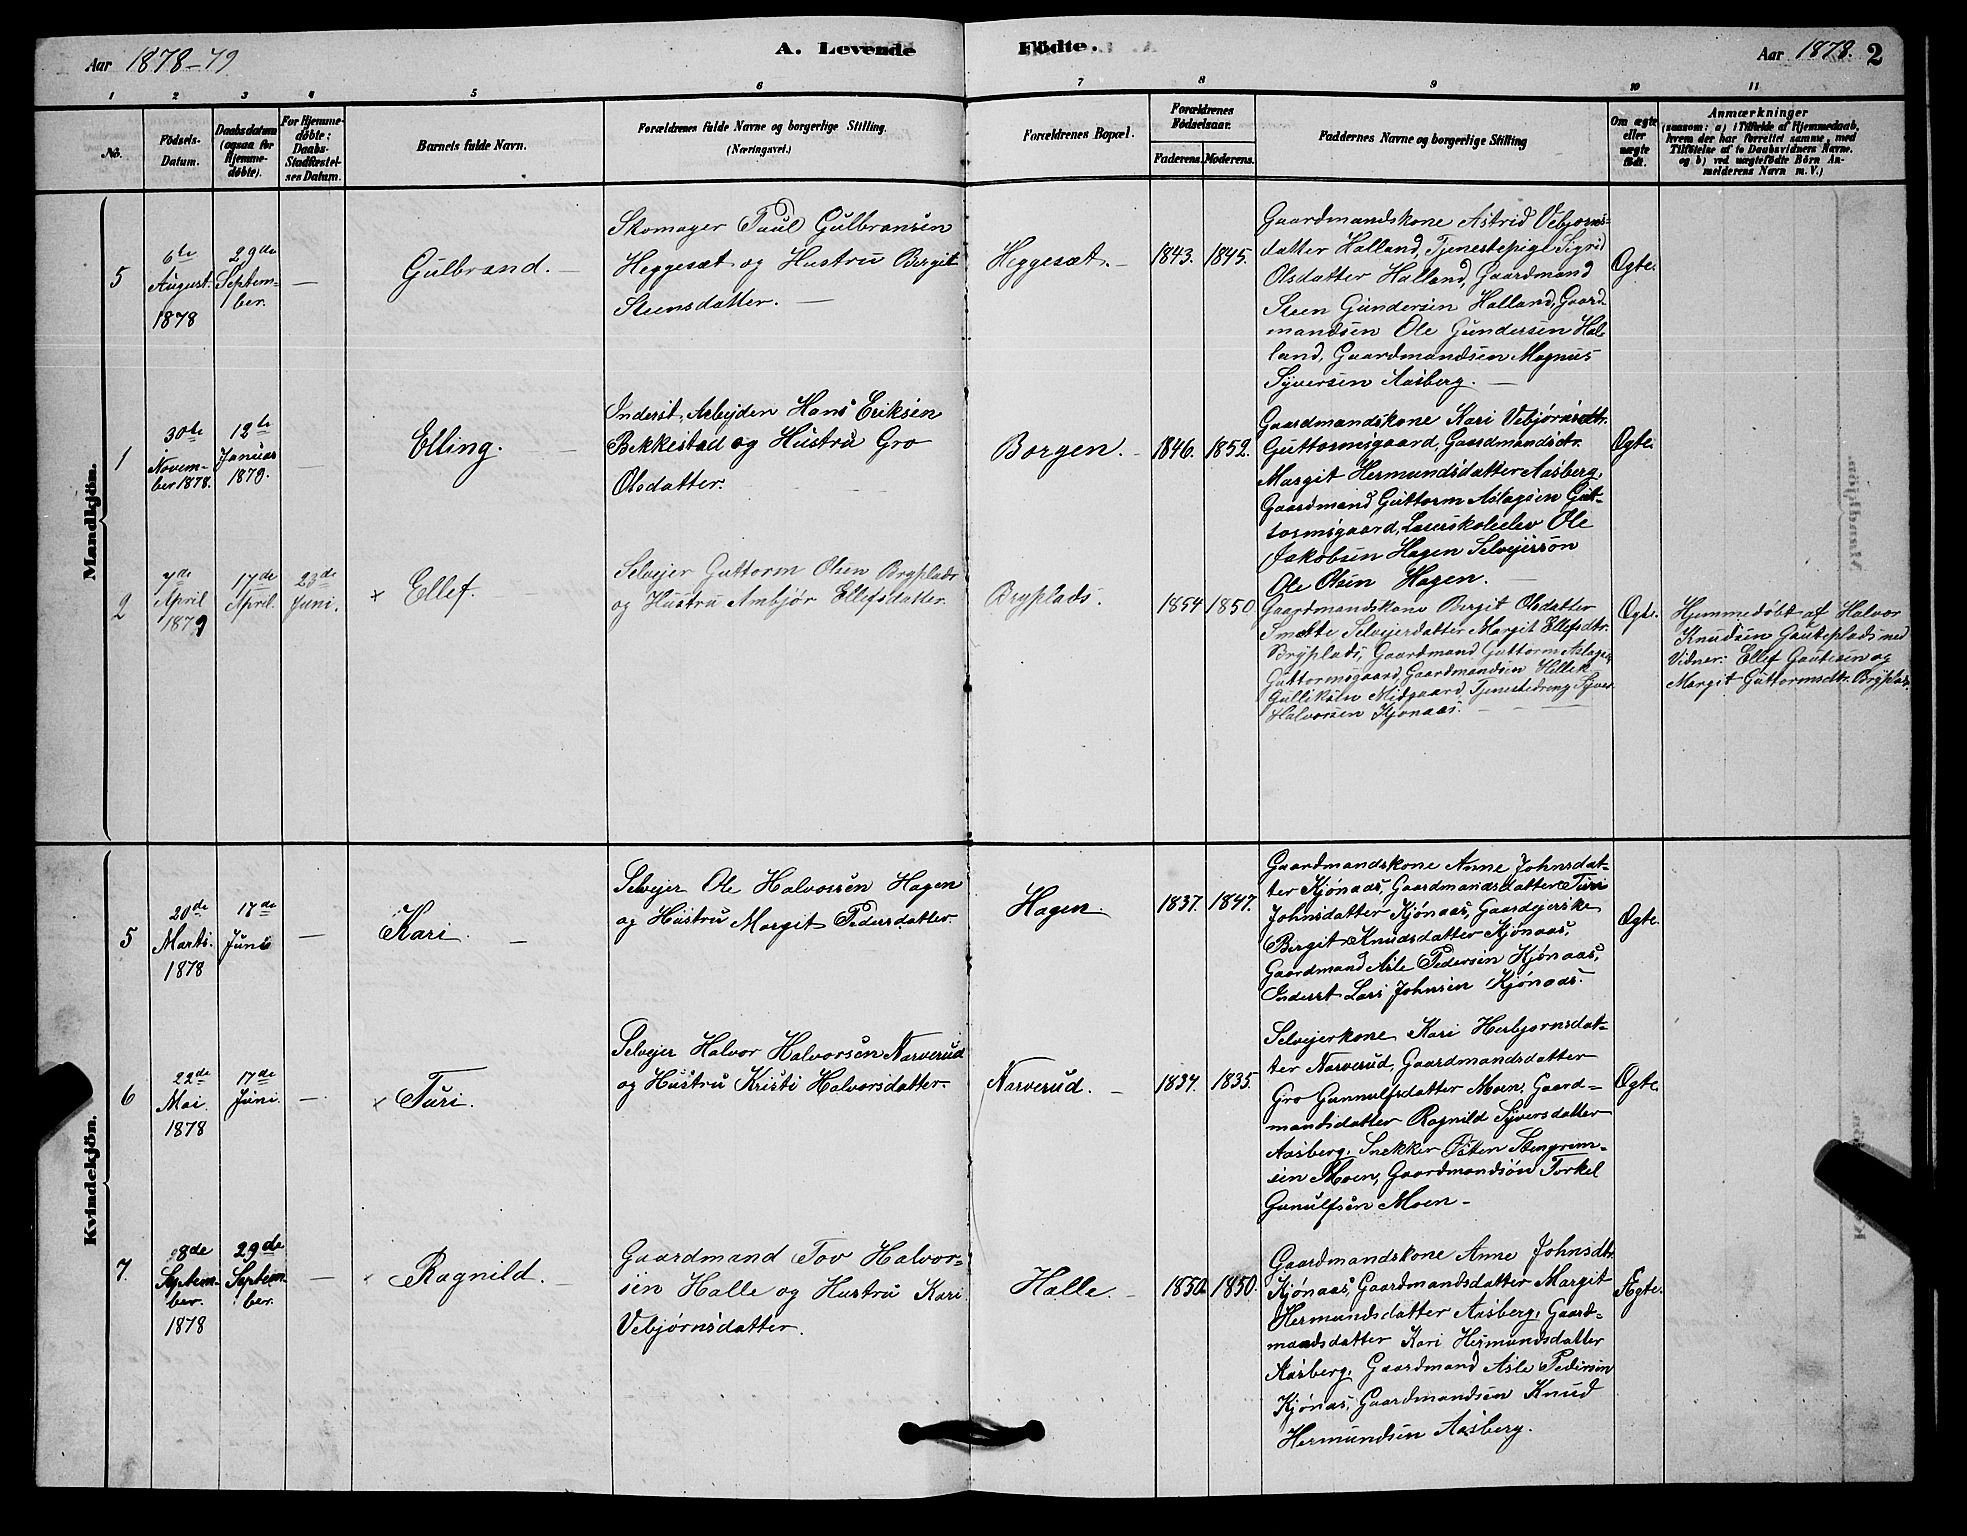 Aar 1878-79
A. Levende Födte.
Aar 1878. 2
1 2 3 4 5 6 7 8 9 10 11
No.
Födsels-
Datum.
Daabsdatum
(ogsaa for
Hjemme-
døbte).
For Hjemme-
døbte:
Daabs-
Stadfæstel-
ses Datum.
Barnets fulde Navn.
Forældrenes fulde Navne og borgerlige Stilling.
(Næringsvei.)
Forældrenes Bopæl.
Forældrenes
Fødselsaar.
Faderens. Moderens.
Faddernes Navne og borgerlige Stilling
Om ægte
eller
uægte
født.
Anmærkninger
(saasom: a) i Tilfælde af Hjemmedaab,
hvem der har forrettet samme, med
Tilføielse af to Daabsvidners Navne,
og b) ved uægtefödte Börn An-
melderens Navn m. V.)
Mandkjön.
5
6te
August.
1878
29de
Septem-
ber.
—
Gulbrand. —
Skomager Paul Gulbransen
Heggesæt og Hustru Bergit
Steensdatter. —
Heggesæt. —
1843. 1845.
Gaardmandskone Astrid Vebjørns-
datter Halland, Tjenestepige Sigrid
Olsdatter Halland, Gaardmand
Steen Gundersen Halland, Gaard-
mandsen Ole Gundersen Hal-
land, Gaardmandsen Magnus
Syversen Aasberg. —
Ægte.
1
30te
Novem-
ber 1878.
12te
Januar
1879.
—
Elling. —
Inderst, Arbejder Hans Eriksen
Bekkestad og Hustru Gro
Olsdatter.
Borgen. -
1846. 1852.
Gaardmandskone Kari Vebjørnsdtr.
Guttormsgaard, Gaardmandsdtr.
Margit Hermundsdatter Aasberg,
Gaardmand Guttorm Aslagsen Gut-
tormsgaard, Lærerskoleelev Ole
Jakobsen Hagen Selvejersøn
Ole Olsen Hagen. —
Ægte.
2
7de
April
1879
17de
April.
23de
Juni.
x Ellef. —
Selvejer Guttorm Olsen Bryplads
og Hustru Ambjør Ellefsdatter.
Bryplads.
1854 1850
Gaardmandskone Bergit Olsdatter
Smætte Selvejerdatter Margit Ellefsdtr.
Bryplads, Gaardmand Guttorm Aslagsen
Guttormsgaard, Gaardmandsen Hellek
Gulliksen Midgaard, Tjenestedreng Syver
Halvorsen Kjønaas. —
Ægte.
Hjemmedøbt af Halvor
Knudsen Gauteplads med
Vidner: Ellef Gautesen og
Margit Guttormsdtr. Bryplads.
Kvindekjön.
5
20de
Marts.
1878
17de
Juni
—
Kari. —
Selvejer Ole Halvorsen Hagen
og Hustru Margit Pedersdatter
Hagen.
1837. 1847.
Gaardmandskone Anne Johnsdat-
ter Kjønaas, Gaardmandsdatter Turi
Johnsdatter Kjønaas, Gaardejerske
Bergit Knudsdatter Kjønaas,
Gaardmand Asle Pedersen Kjønaas,
Inderst Lars Johnsen Kjønaas.
Ægte.
6
22de
Mai.
1878
17de
Juni.
—.
x Turi.
Selvejer Halvor Halvorsen Narverud
og Hustru Kristi Halvorsdatter-
Narverud. —
1834. 1835.
Selvejerkone Kari Herbjørnsdat-
ter Narverud, Gaardmandsdatter
Gro Gunnulfsdatter Moen, Gaard-
mandsdatter Ragnild Syversdatter
Aasberg, Snekker Østen Stengrim-
sen Moen, Gaardmandsøn Torkel
Gunulfsen Moen -
Ægte.
7.
8de
Septem-
ber.
1878
29de
Septem-
ber.
—
x Ragnild. —
Gaardmand Tov Halvor-
sen Halle og Hustru Kari
Vebjørnsdatter.
Halle. -
1850. 1850.
Gaardmandskone Anne Johnsdtr.
Kjønaas, Gaardmandsdatter Margit
Hermundsdatter Aasberg, Gaard-
mandsdatter Kari Hermundsdatter
Aasberg, Gaardmand Asle Pedersen
Kjønas, Gaardmandsen Knud
Hermundsen Aasberg.
Ægte.